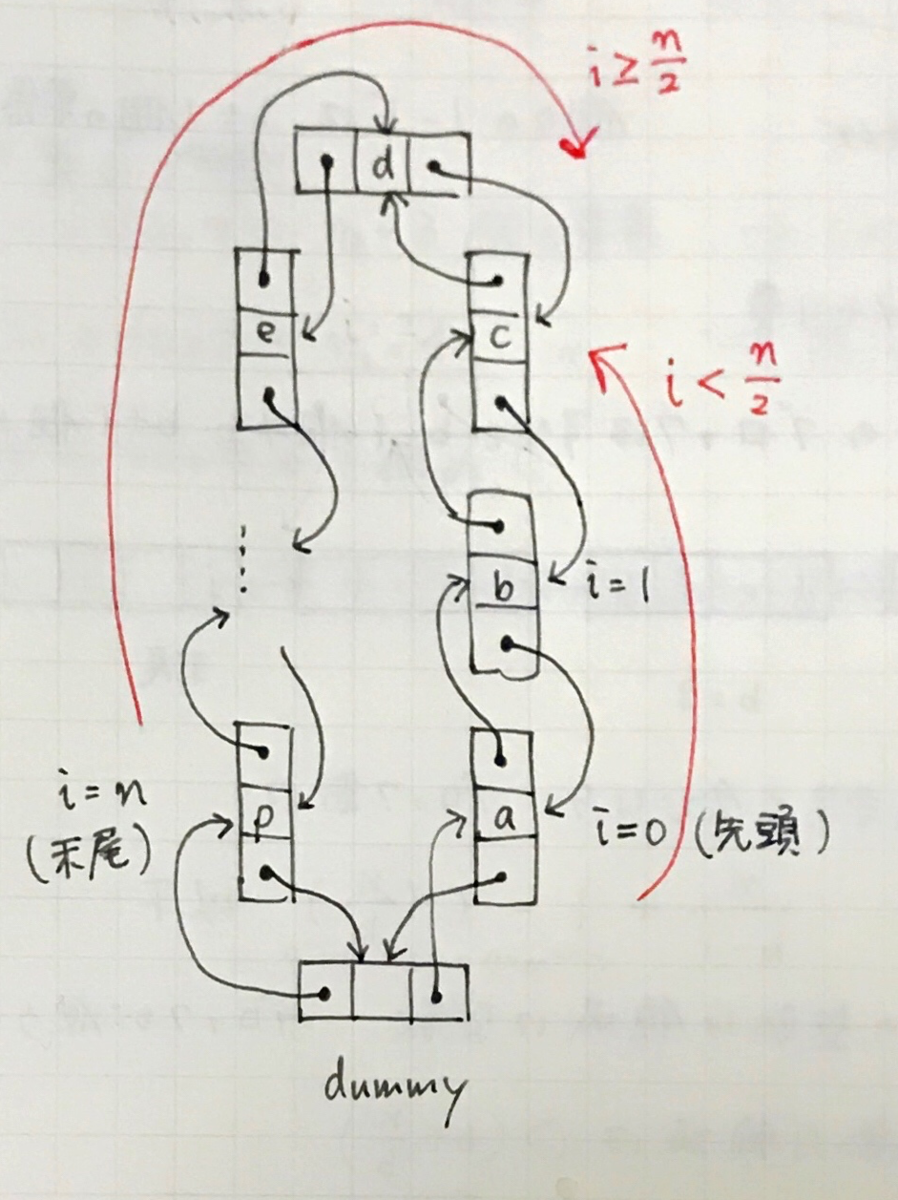 i ≥ n/2
d
e
c
i < n/2
b
i=1
i=n
(末尾)
p
a
i=0 (先頭)
dummy